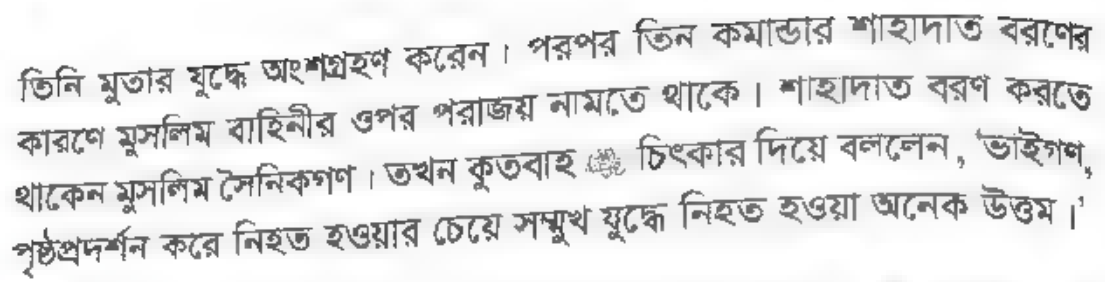 তিনি মুতার যুদ্ধে অংশগ্রহণ করেন। পরপর তিন কমান্ডার শাহাদাত বরণের
কারণে মুসলিম বাহিনীর ওপর পরাজয় নামতে থাকে। শাহাদাত বরণ করতে
থাকেন মুসলিম সৈনিকগণ। তখন কুতবাহ চিৎকার দিয়ে বললেন, 'ভাইগণ,
পৃষ্ঠপ্রদর্শন করে নিহত হওয়ার চেয়ে সম্মুখ যুদ্ধে নিহত হওয়া অনেক উত্তম।'